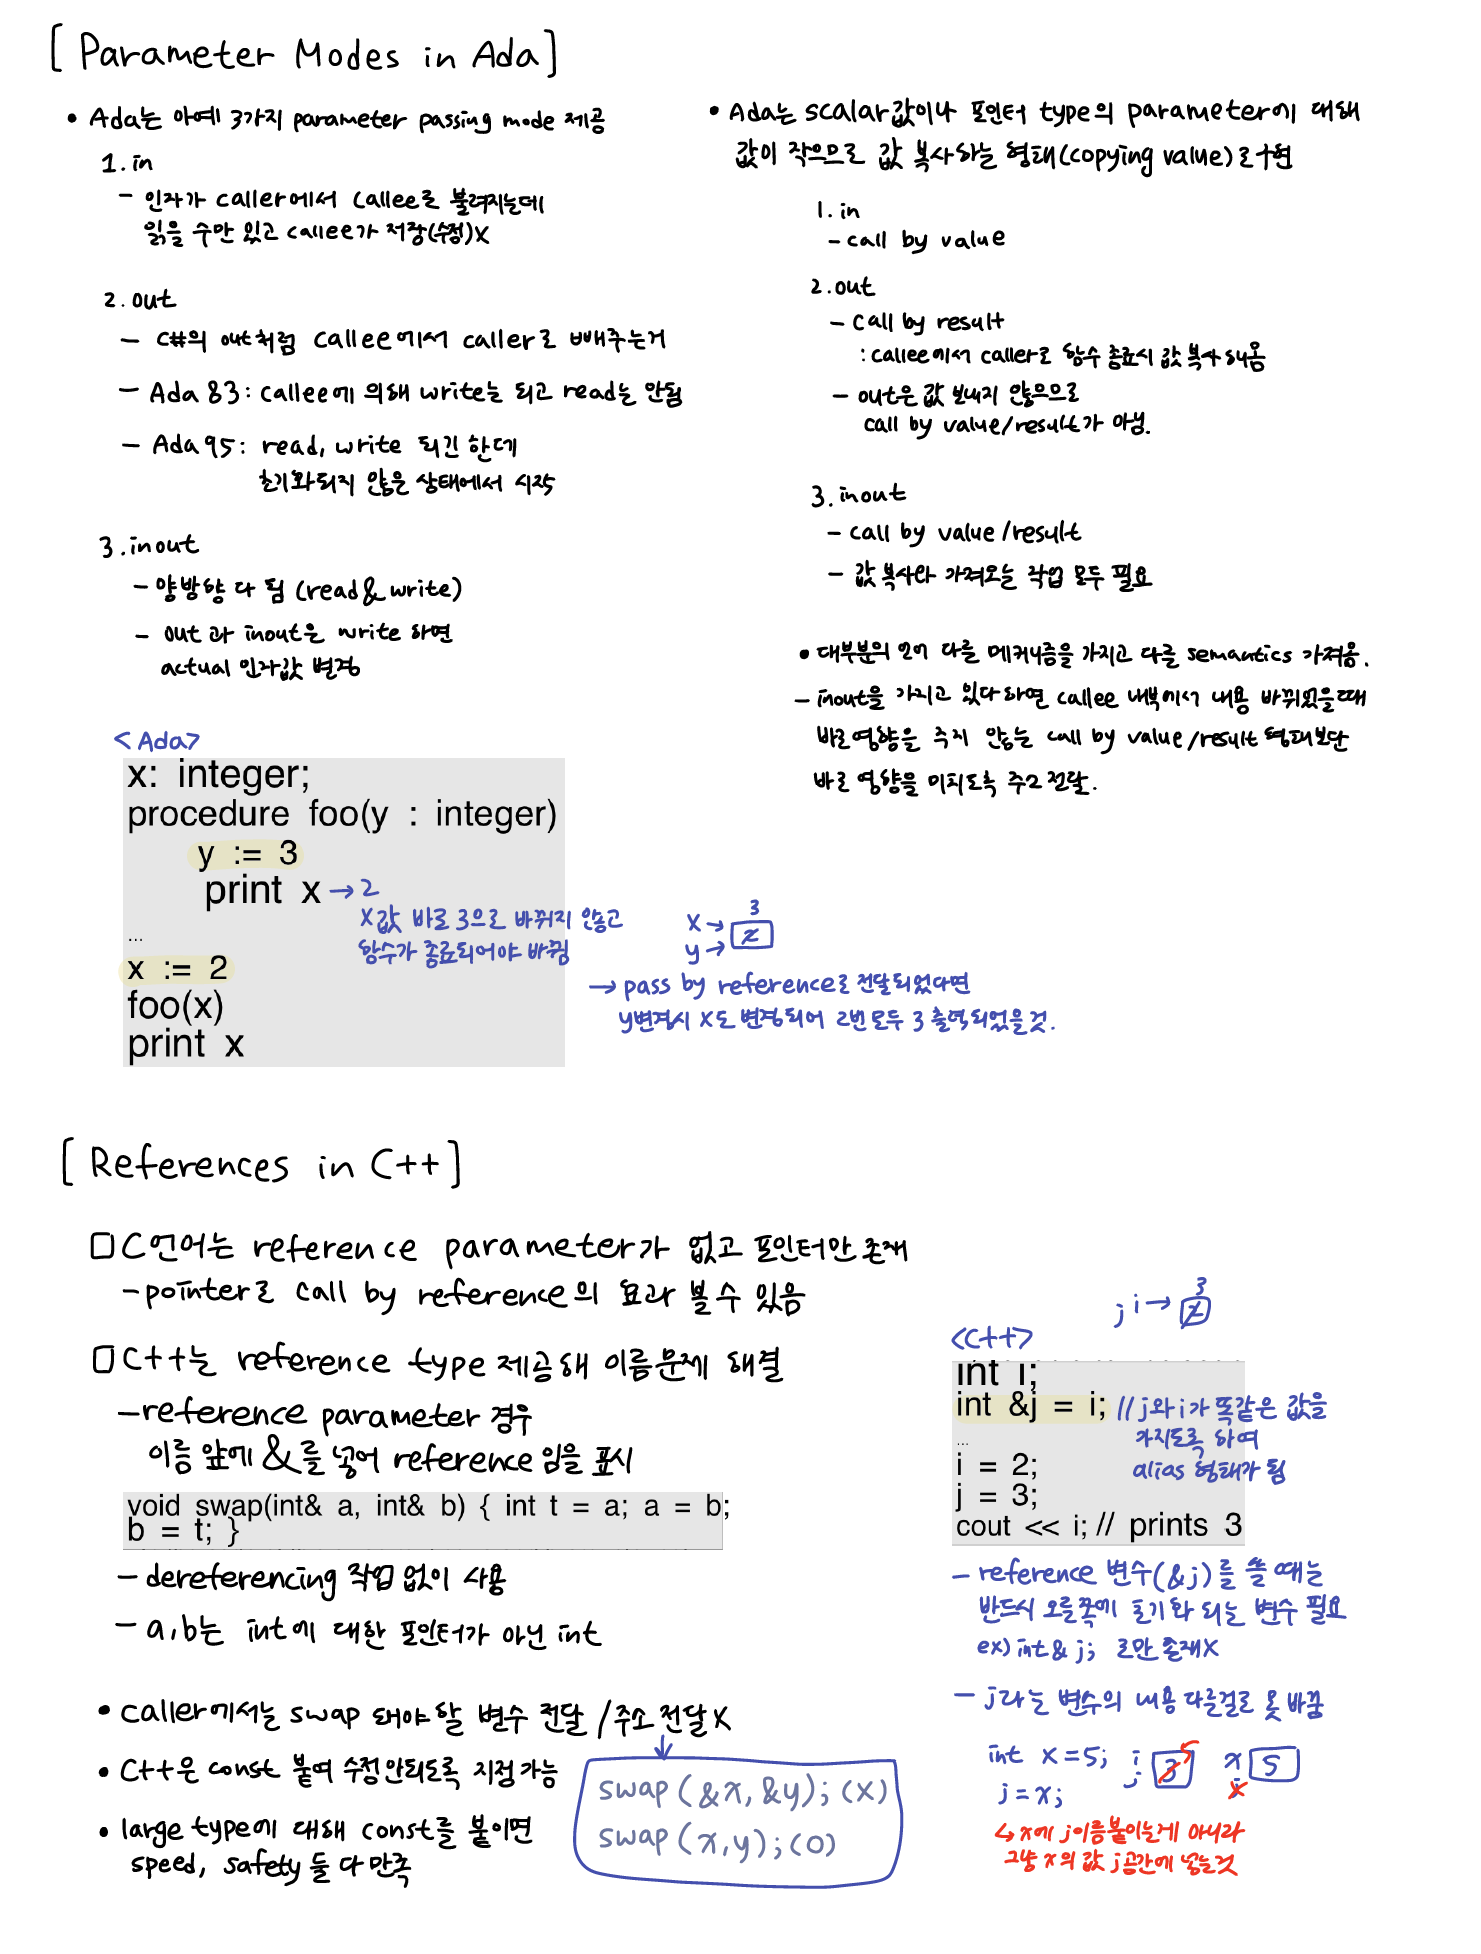 [Parameter Modes in Ada]
• Ada는 아예 3가지 parameter passing mode 제공
1. in
- 인자가 caller에서 callee로 불려지는데
읽을 수만 있고 callee가 저장(수정)X
2. out
- C#의 out처럼 callee에서 caller로 빼주는거
- Ada 83: callee에 의해 write는 되고 read는 안됨
- Ada 95: read, write 되긴 한데
초기화되지 않은 상태에서 시작
3. inout
- 양방향 다 됨 (read & write)
- out과 inout은 write 하면
actual 인자값 변경
<Ada>
x: integer;
procedure foo(y : integer)
y := 3
print x → 2
x값 바로 3으로 바뀌지 않고
함수가 종료되어야 바뀜
...
x := 2
foo(x)
print x
3
x → 2
y →
→ pass by reference로 전달되었다면
y변경시 x도 변경되어 2번 모두 3 출력되었을 것.
• Ada는 scalar값이나 포인터 type의 parameter에 대해
값이 작으므로 값 복사하는 형태(copying value)로 구현
1. in
- call by value
2. out
- call by result
: callee에서 caller로 함수 종료시 값 복사해옴
- out은 값 보내지 않으므로
call by value/result가 아님.
3. inout
- call by value/result
- 값 복사와 가져오는 작업 모두 필요
• 대부분의 언어 다들 메커니즘을 가지고 다를 semantics 가져옴.
- inout을 가지고 있다 하면 callee 내부에서 내용 바뀌었을때
바로 영향을 주지 않는 call by value/result 형태보단
바로 영향을 미치도록 주고 전달.
[References in C++]
□ C언어는 reference parameter가 없고 포인터만 존재
- pointer로 call by reference의 효과 볼 수 있음
□ C++는 reference type 제공해 이름문제 해결
- reference parameter 경우
이름 앞에 &를 넣어 reference 임을 표시
void swap(int& a, int& b) { int t = a; a = b;
b = t; }
- dereferencing 작업 없이 사용
- a,b는 int에 대한 포인터가 아닌 int
• caller에서는 swap 해야 할 변수 전달 /주소 전달 X
• C++은 const 붙여 수정 안되도록 지정 가능
• large type에 대해 const를 붙이면
speed, safety 둘 다 만족
swap (&x, &y); (X)
swap (x,y); (O)
3
j i → 2
<C++>
int i;
int &j = i; // j와 i가 똑같은 값을
가지도록 하여
alias 형태가 됨
...
i = 2;
j = 3;
cout << i; // prints 3
- reference 변수(&j)를 쓸 때는
반드시 오른쪽에 초기화 되는 변수 필요
ex) int & j; 로만 존재X
- j라는 변수의 내용 다른걸로 못 바꿈
int x = 5; i 3 5 x 5
j = x; j j
↳ x에 j이름붙이는게 아니라
그냥 x의 값 j공간에 넣는것